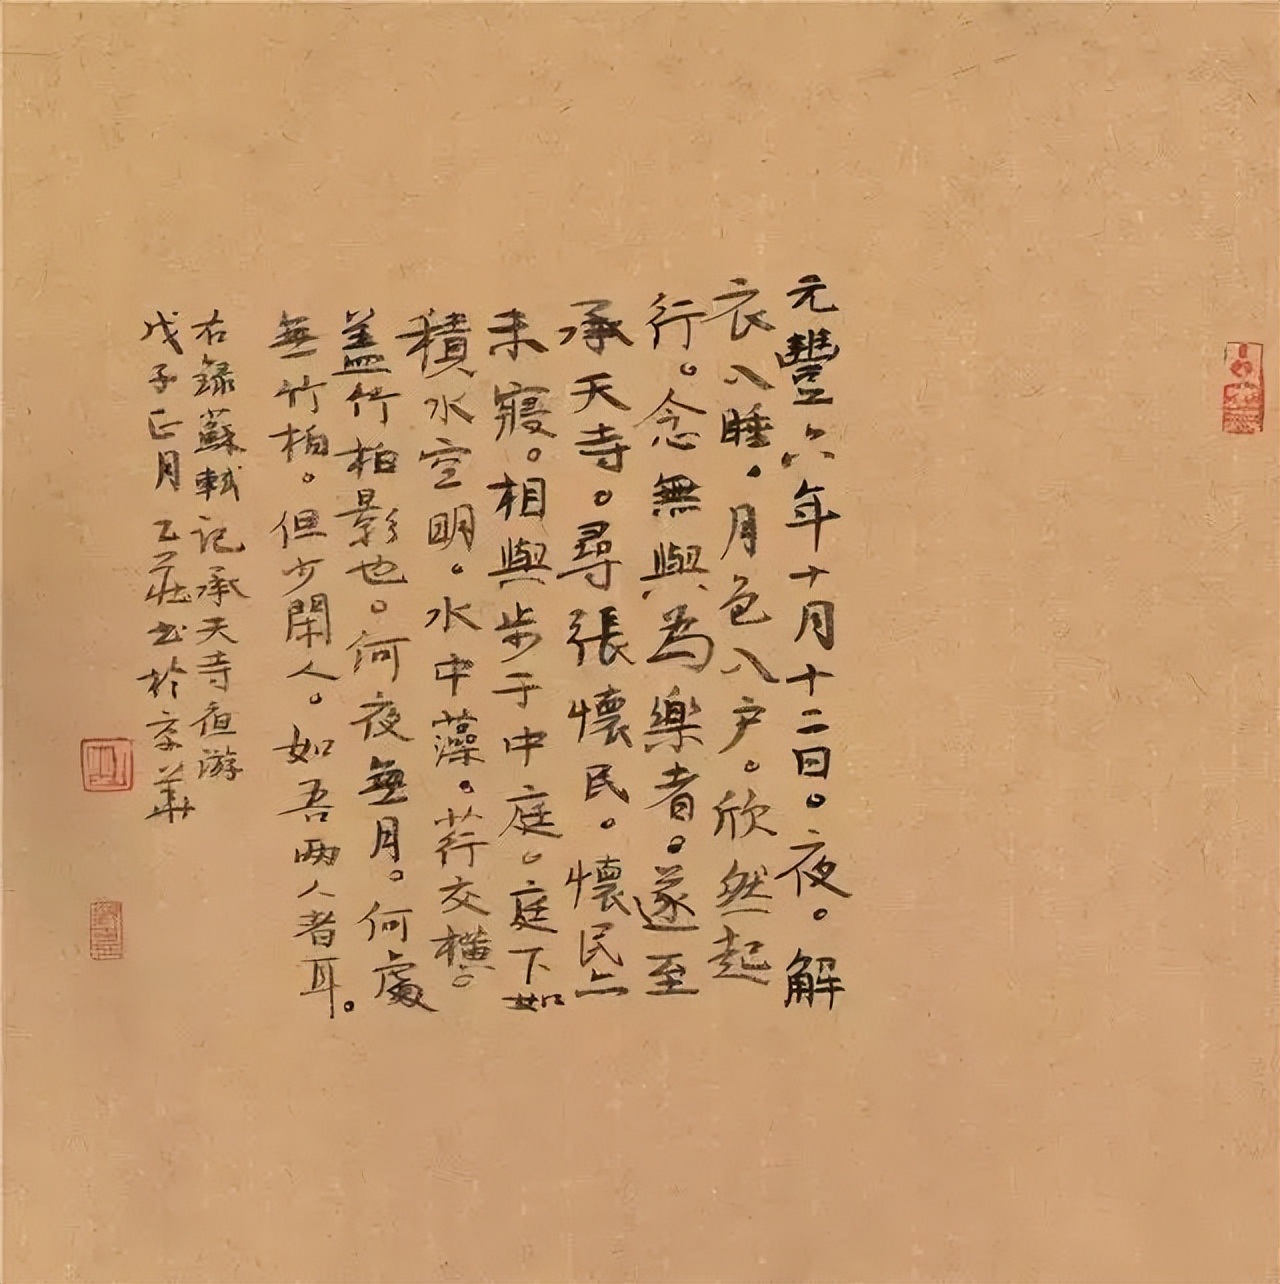 元豐六年十月十二日。夜。解
衣入睡。月色入户。欣然起
行。念無與為樂者。遂至
承天寺。尋張懷民。懷民亦
未寢。相與步于中庭。庭下如
積水空明。水中藻。荇交橫。
蓋竹柏影也。何夜無月。何處
無竹柏。但少閑人。如吾兩人者耳。
右錄蘇軾記承天寺夜游
戊子正月乙莊书於京華